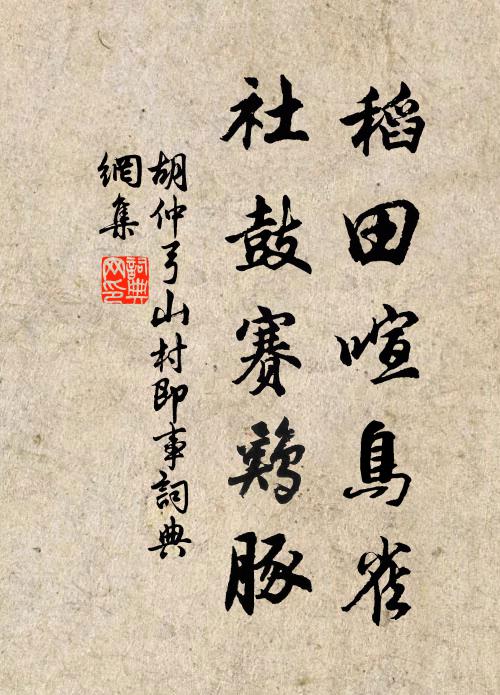 稻田喧鳥雀
社鼓賽鷄豚
胡仲弓山村即事詞典
網集
詞典
网印